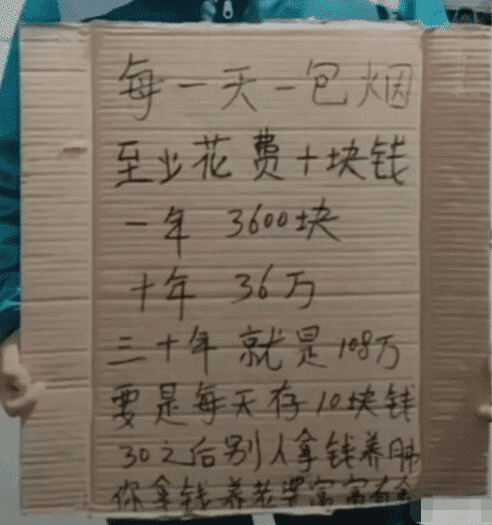 每一天一包烟
至业花费十块钱
一年 3600块
十年 36万
三十年 就是 108万
要是每天存10块钱
30之后别人拿钱养肺
你拿钱养老婆富富有余